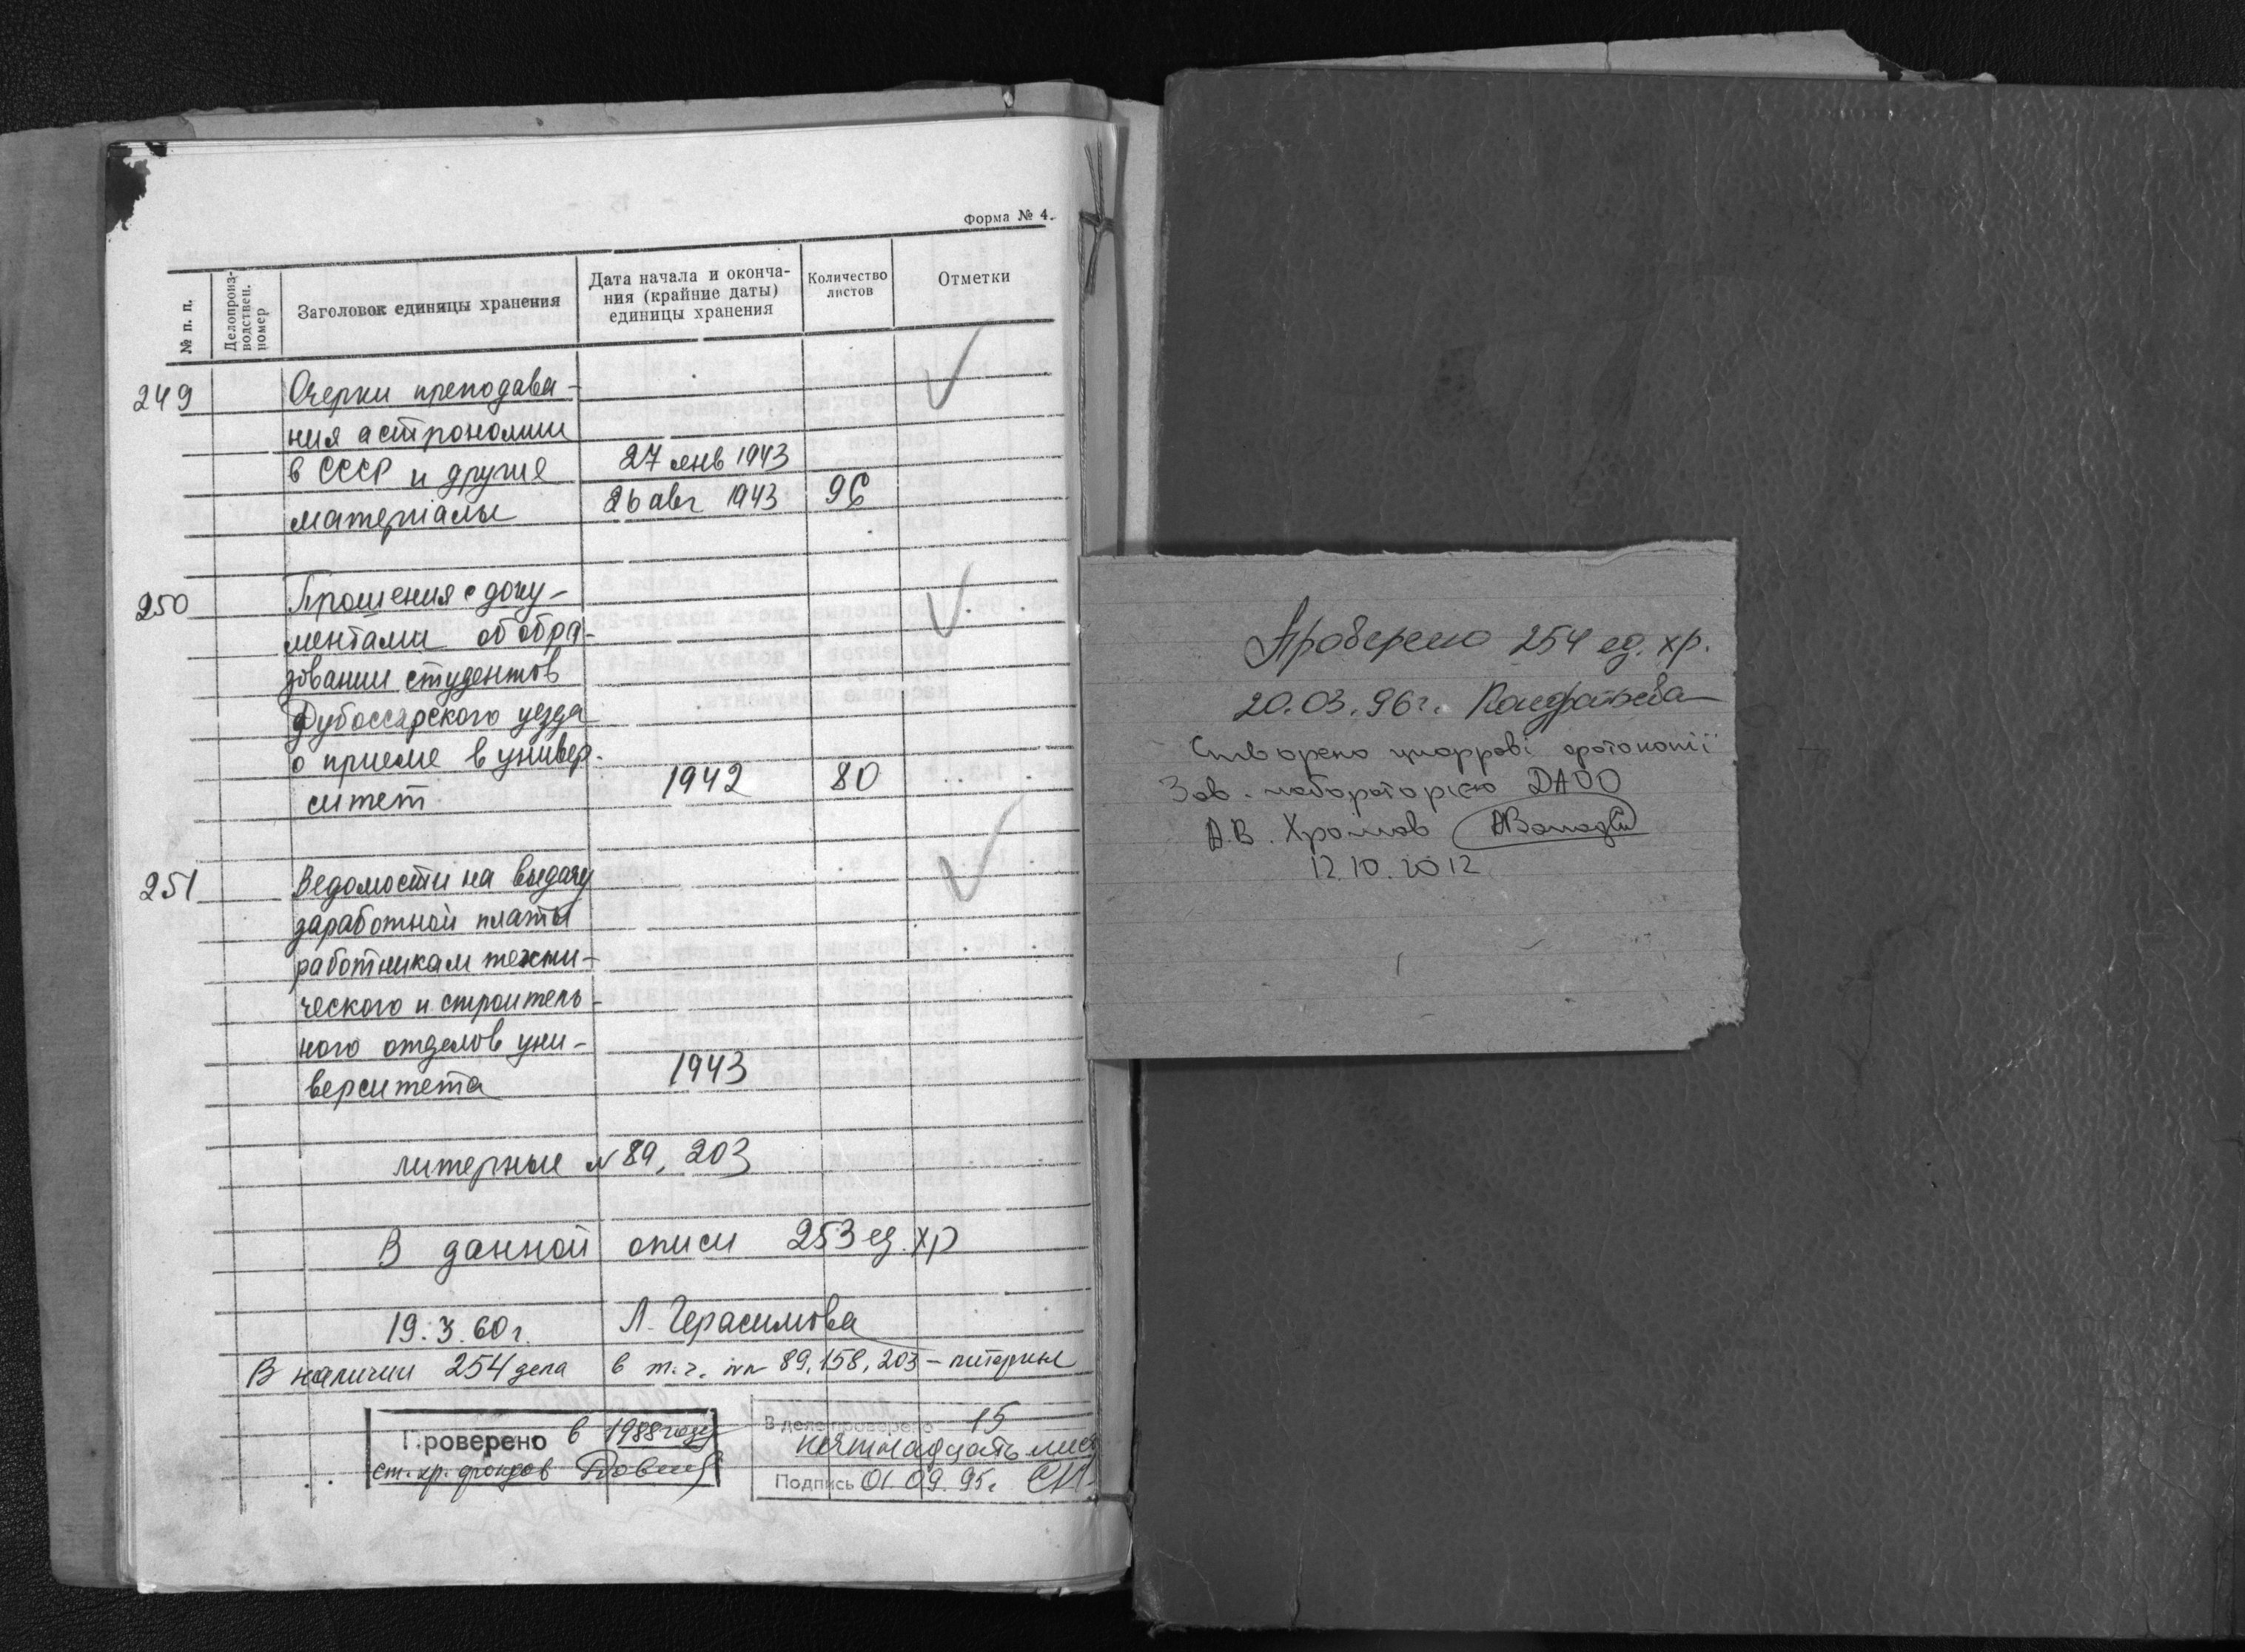 Форма № 4.
№ п. п.
Делопроиз-
водствен.
номер
Заголовок единицы хранения
Дата начала и оконча-
ния (крайние даты)
единицы хранения
Количество
листов
Отметки
249 Очерки преподава-
ния астрономии
в СССР и другие 27 янв 1943
материалы 26 авг 1943 96
250 Прошения с доку-
ментами об обра-
зовании студентов
Дубоссарского уезда
о приеме в универ-
ситет 1942 80
251 Ведомости на выдачу
заработной платы
работникам техни-
ческого и строитель-
ного отделов уни-
верситета 1943
литерные № 89, 203
В данной описи 253 ед. хр
19.3.60 г. Л. Герасимова
В наличии 254 дела в т. ч. №№ 89, 158, 203 – литерные
Проверено в 1988 году
ст. хр. фондов
В деле проверено 15
пятнадцать лис
Подпись 01.09.95г.
Проверено 254 ед. хр.
20.03.96г. Кондратьева
Створено цифрові фотокопії
Зав. лабораторією ДАОО
А.В. Хромов
12.10.2012